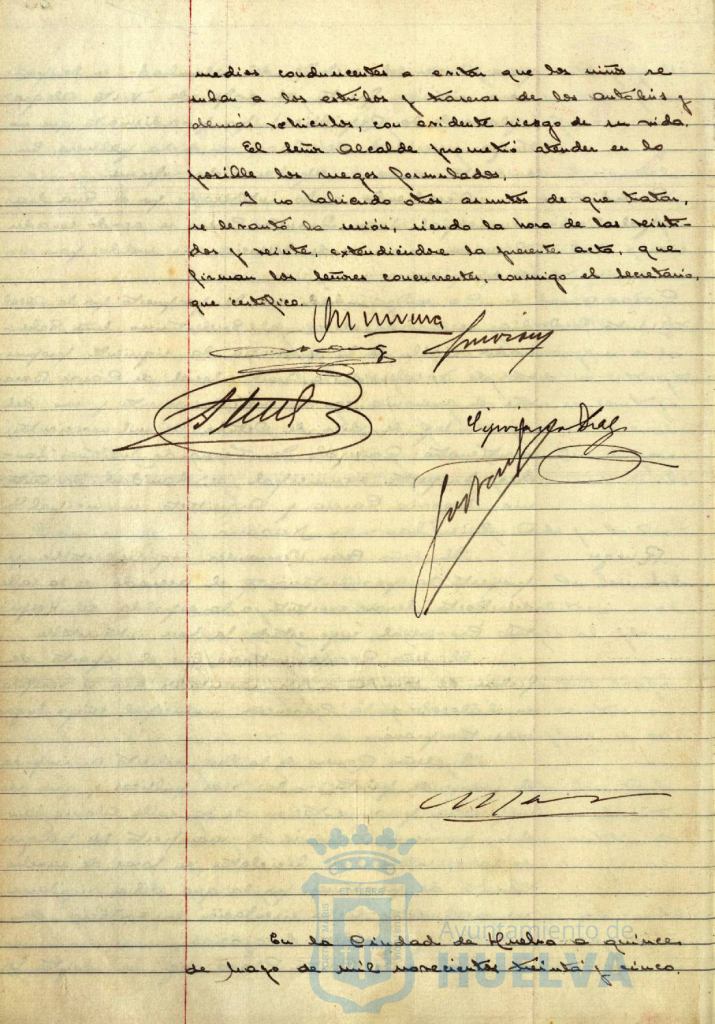 medios conducentes a evitar que los niños se
suban a los estribos y traseras de los autobús y
demás vehículos, con evidente riesgo de su vida.
El Señor Alcalde prometió atender en lo
posible los ruegos formulados.
Y no habiendo otros asuntos de que tratar,
se levantó la sesión, siendo la hora de las veinti-
dos y veinte, extendiéndose la presente acta, que
firman los Señores concurrentes, conmigo el Secretario,
que certifico.
Cipriano Diaz
Ayuntamiento de
HUELVA
En la Ciudad de Huelva a quince
de Mayo de mil novecientos treinta y cinco.